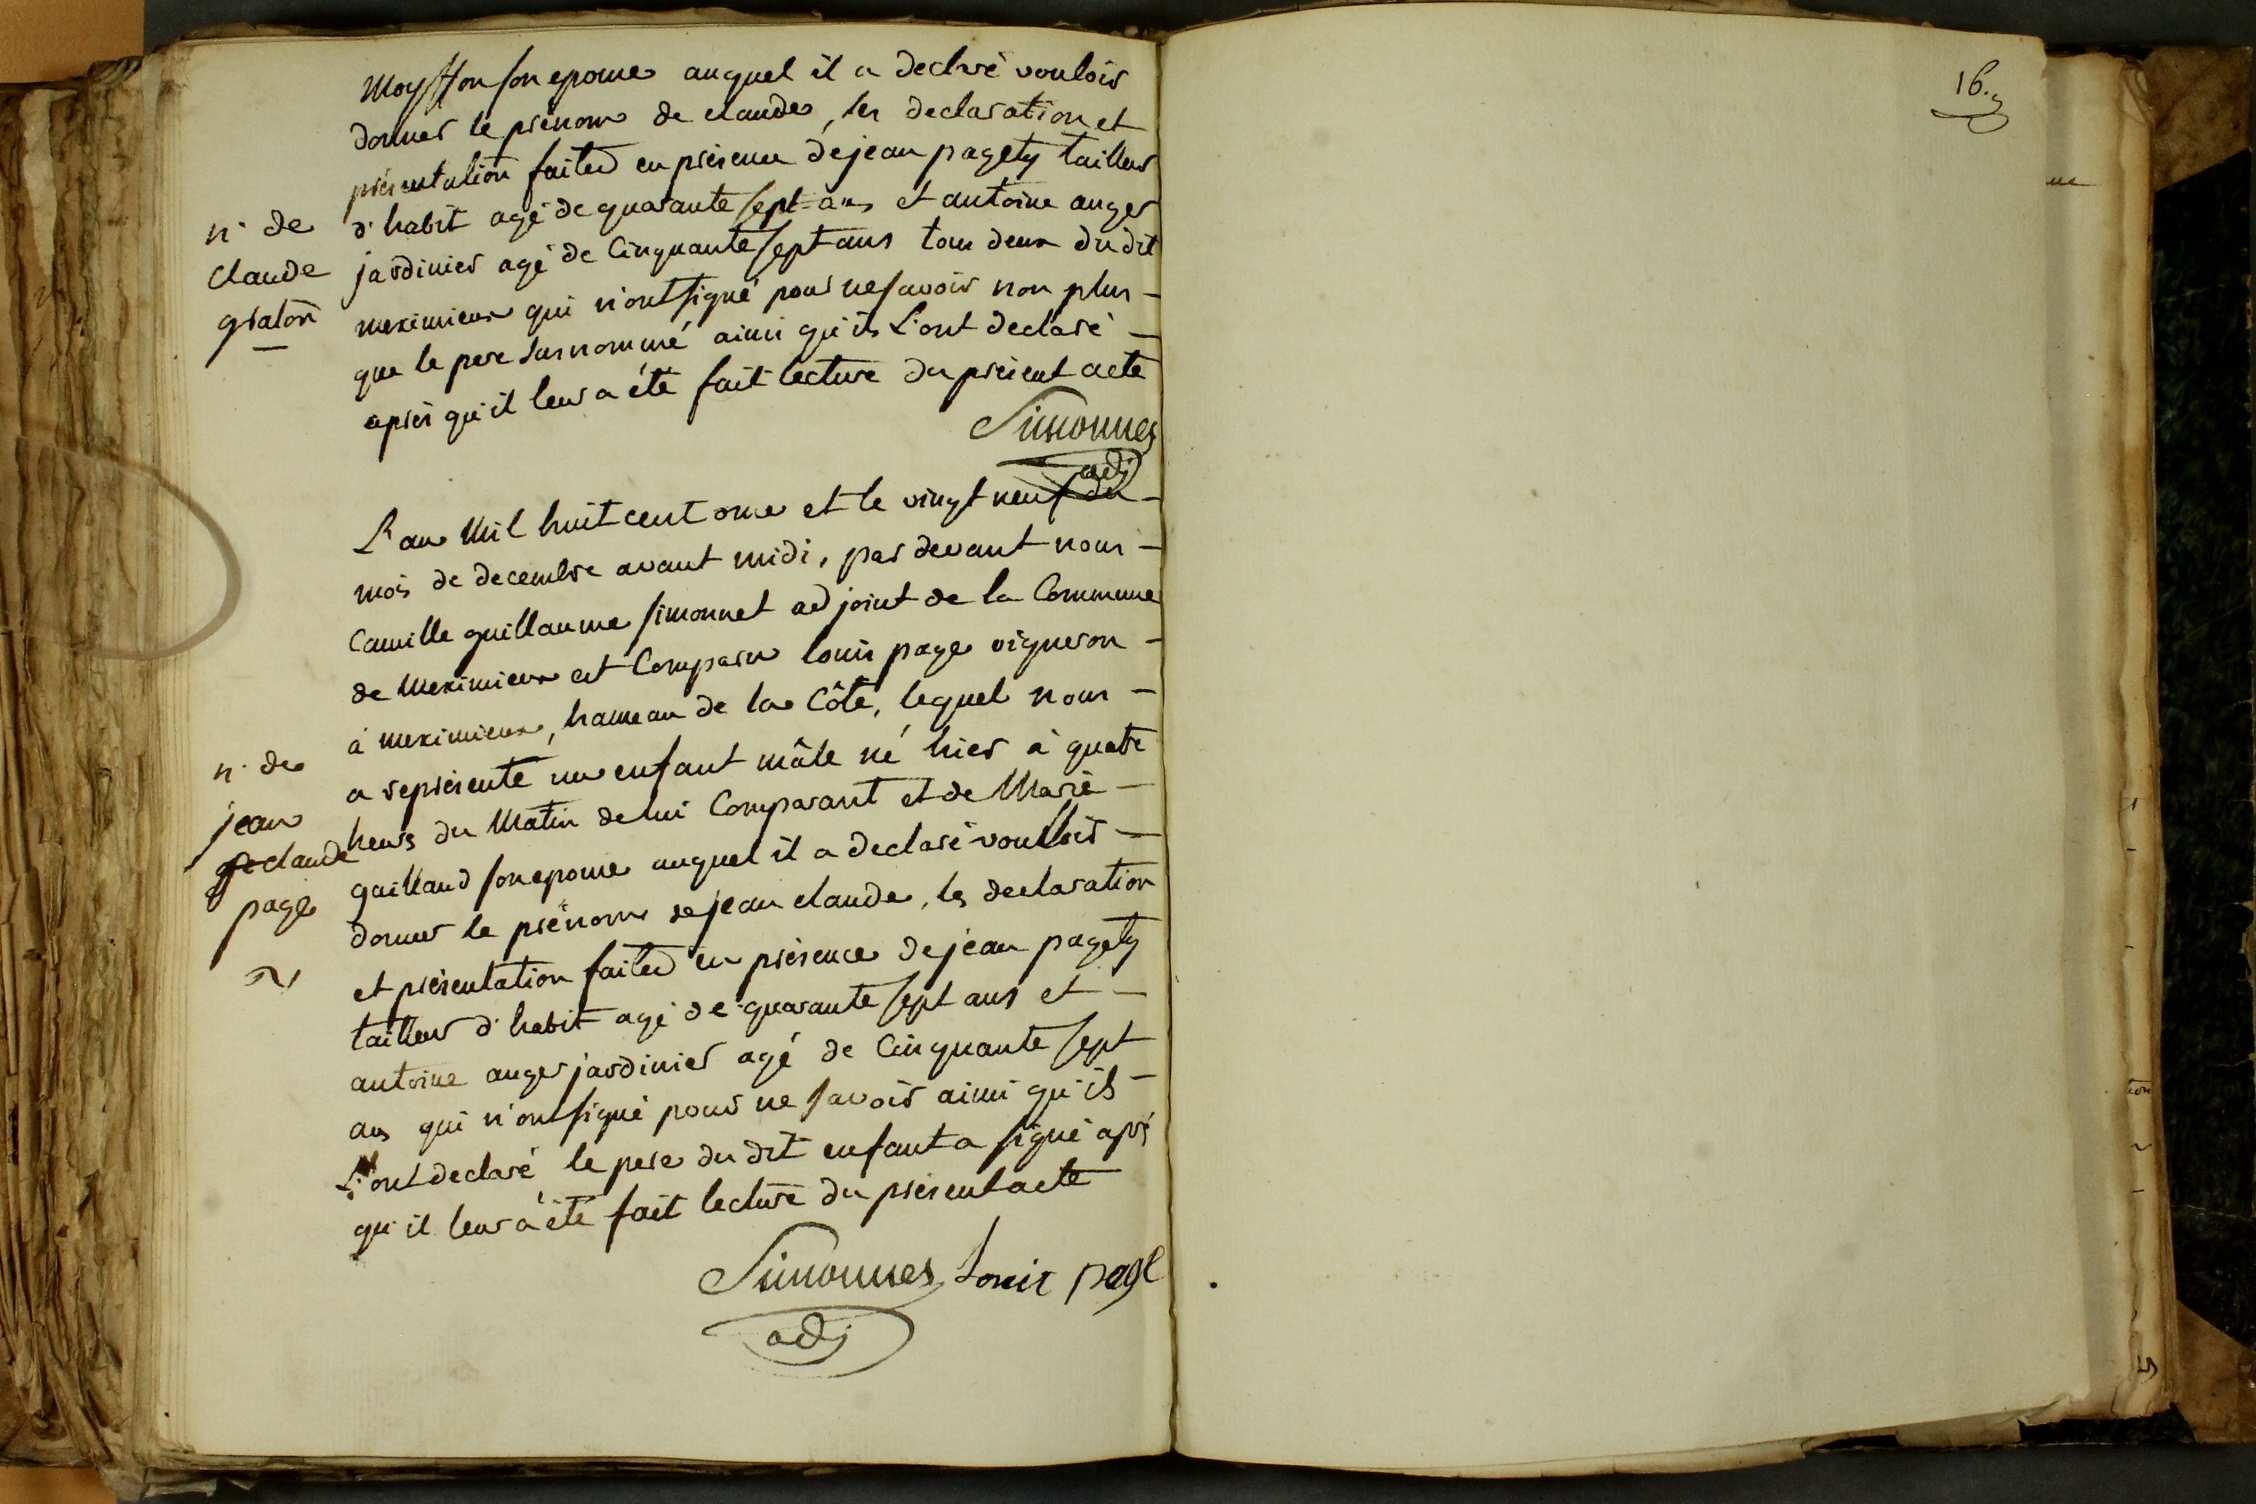 Moysson son epouse auquel il a declaré vouloir
donner le prénom de claude, les declaration et
présentation faites en présence de jean pagety tailleur
d'habit agé de quarante sept ans et antoine auger
jardinier agé de Cinquante sept ans tous deux du dit
meximieux qui n'ont signé pour ne savoir non plus -
que le pere surnommé ainsi qu'ils L'ont declaré -
après qu'il leur a été fait lecture du présent acte
n. de
claude
graton
Simonnet
adj
L'an Mil huit cent onze et le vingt neuf du -
mois de decembre avant midi, par devant nous -
Camille guillaume simonnet adjoint de la Commune
de Meximieux est Comparu louis page vigneron -
à meximieux, hameau de la Côte, lequel nous -
a représenté un enfant mâle né hier à quatre
heurs du Matin de lui Comparant et de Marie -
gailland son epouse auquel il a declaré vouloir -
donner le prénom de jean claude, les declaration
et présentation faites en présence de jean pagety
tailleur d'habit agé de quarante sept ans et -
antoine auger jardinier agé de Cinquante sept
ans qui n'ont signé pour ne savoir ainsi qu'ils -
L'ont declaré le pere du dit enfant a signé après
qu'il leur a été fait lecture du présent acte
n. de
jean
claude
page
Simonnet Louis page
adj
16.